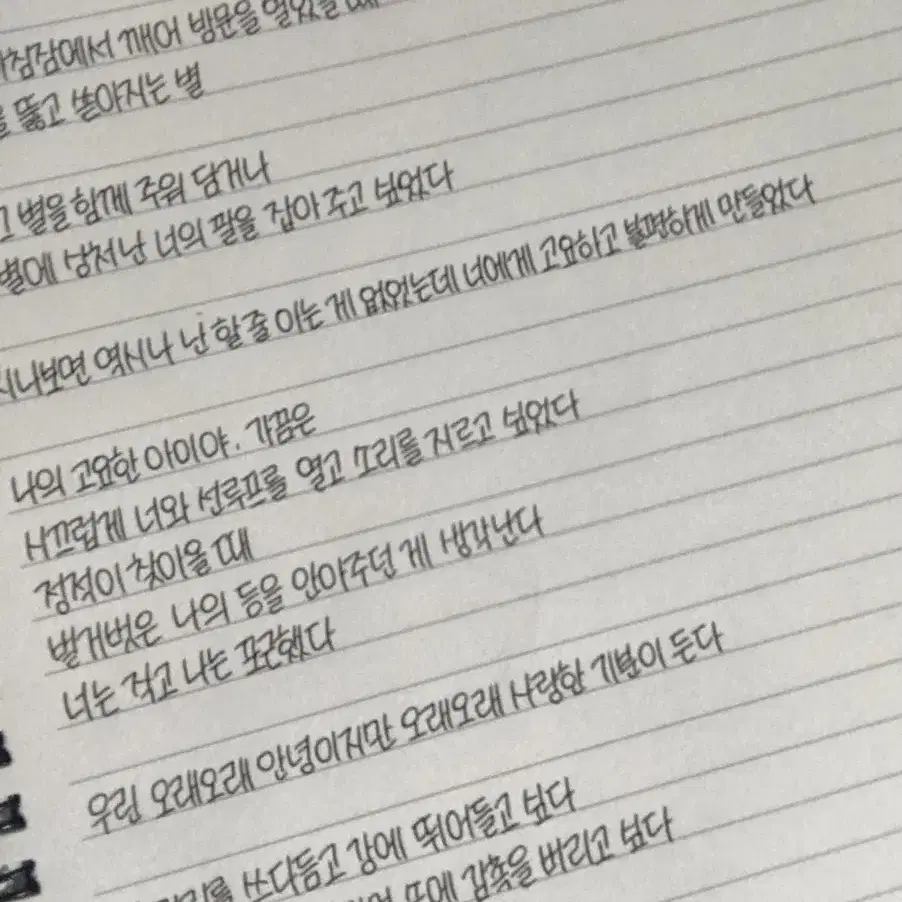 아침잠에서 깨어 방문을 열었을 때
을 뚫고 쏟아지는 별
그 별을 함께 주워 담거나
별에 상처난 너의 팔을 잡아 주고 싶었다
지나보면 역시나 난 할 줄 아는 게 없었는데 너에게 고요하고 불편하게 만들었다
나의 고요한 아이야. 가끔은
시끄럽게 너와 선루프를 열고 소리를 지르고 싶었다
정적이 찾아올 때
벌거벗은 나의 등을 안아주던 게 생각난다
너는 작고 나는 포근했다
우린 오래오래 안녕이지만 오래오래 사랑한 기분이 든다
를 쓰다듬고 강에 뛰어들고 싶다
또에 감촉을 버리고 싶다